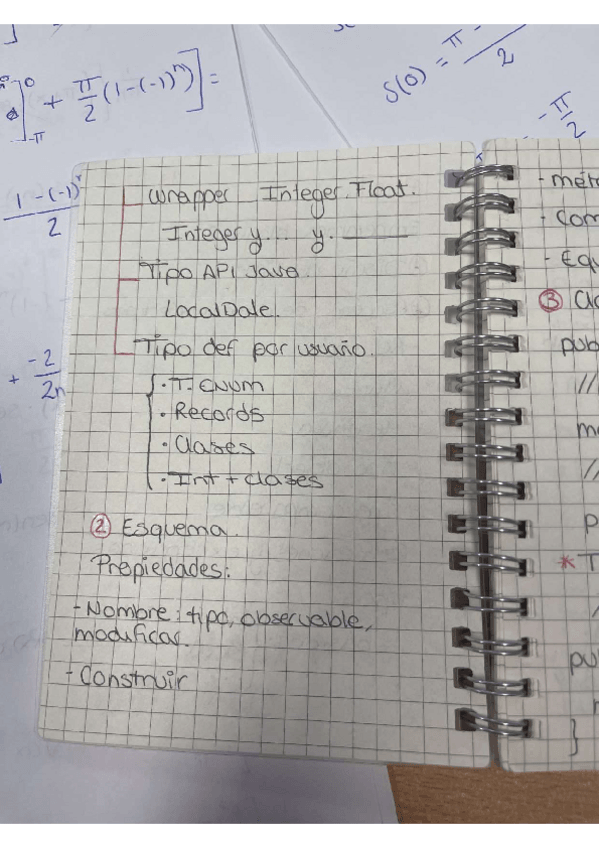 + π/2 (1-(-1)ⁿ)] =
S(0) = π -
2
- π/2
1-(-1)
2
+ -2
2n
Wrapper Integer. Float.
Integer y... y. ______
Tipo API Java.
LocalDate.
Tipo def por usuario.
· T. ENUM
· Records
· Clases
· Int + clases
② Esquema.
Propiedades:
- Nombre: tipo, observable,
modificar.
- Construir
- mét
- Com
- Equ
③ Cla
pub
//
me
//
p
* T
/
pu
}